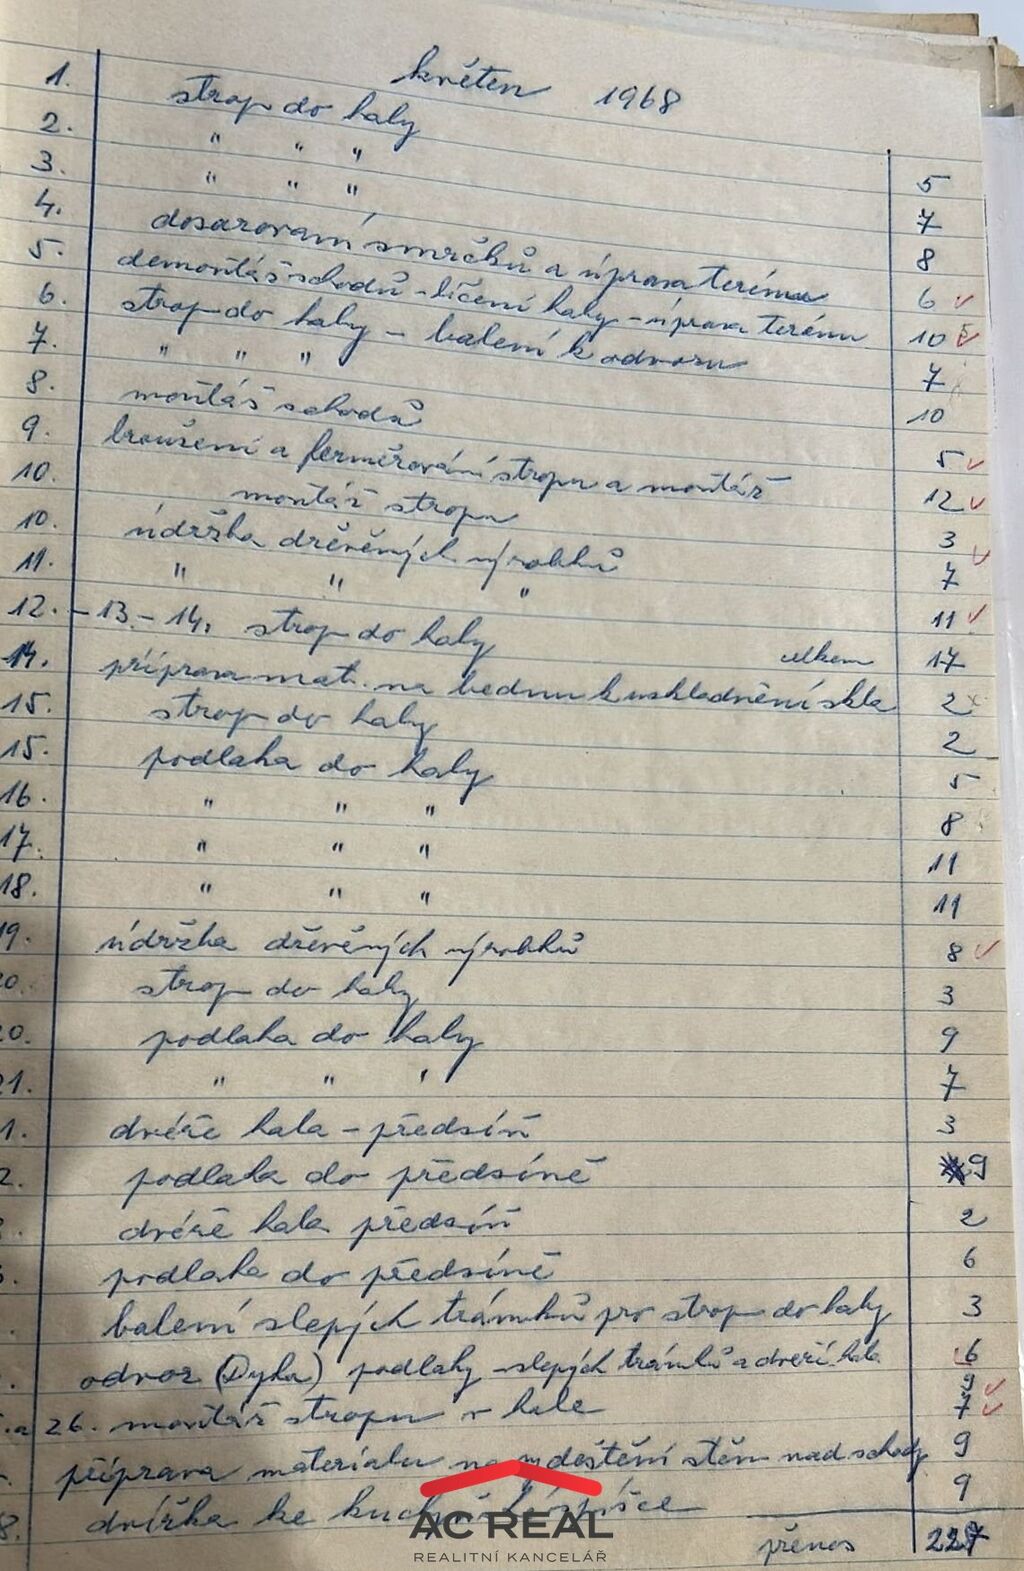 květen 1968
1. strop do haly 5
2. " " " 7
3. " " " 8
4. dosazovaní smrčků a úprava terénu 6
5. demontáž schodů - líčení haly - úprava terénu 10
6. strop do haly - balení k odvozu 7
7. " " " 10
8. montáž schodů 5
9. broušení a ferměrování stropu a montáž 12
10. montáž stropu 3
10. údržba dřěvěných výrobků 7
11. " " " 11
12. - 13. - 14. strop do haly celkem 17
14. příprava mat. na bednu k uskladnění skla 2
15. strop do haly 2
15. podlaha do haly 5
16. " " " 8
17. " " " 11
18. " " " 11
19. údržba dřěvěných výrobků 8
20. strop do haly 3
20. podlaha do haly 9
21. " " " 7
1. dvéře hala - předsíň 3
2. podlaha do předsíně 9
dvéře hala předsíň 2
podlaha do předsíně 6
balení slepých trámků pro strop do haly 3
odvoz (Dyha) podlahy - slepých trámků a dveří hala 6
9
a 26. montáž stropu v hale 7
příprava materialu na vydeštění stěn nad schody 9
8. dvířka ke kuchyň. 9
přenos 227
AC REAL
REALITNÍ KANCELÁŘ